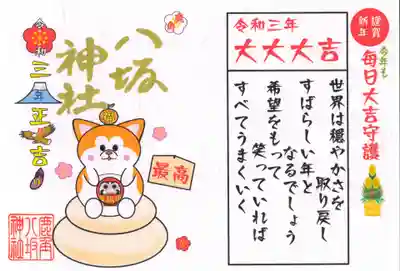 謹賀
新年
今年も
毎日大吉守護
令和三年
大大大吉
世界は穏やかさを
取り戻し
すばらしい年と
なるでしょう
希望をもって
笑っていれば
すべてうまくいく
八坂
神社
令和
三年正吉
最高
鹿角
八坂
神社